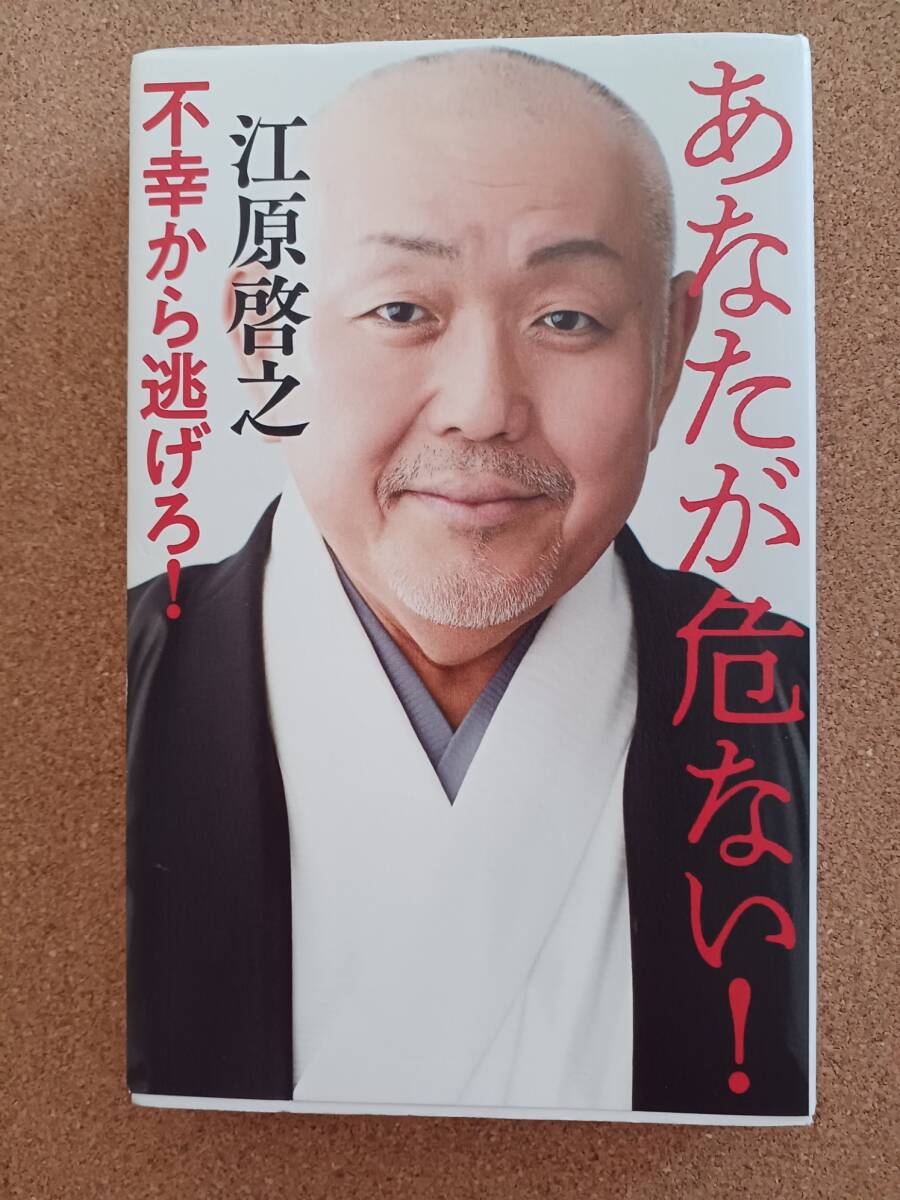 あなたが危ない!
江原啓之
不幸から逃げろ!